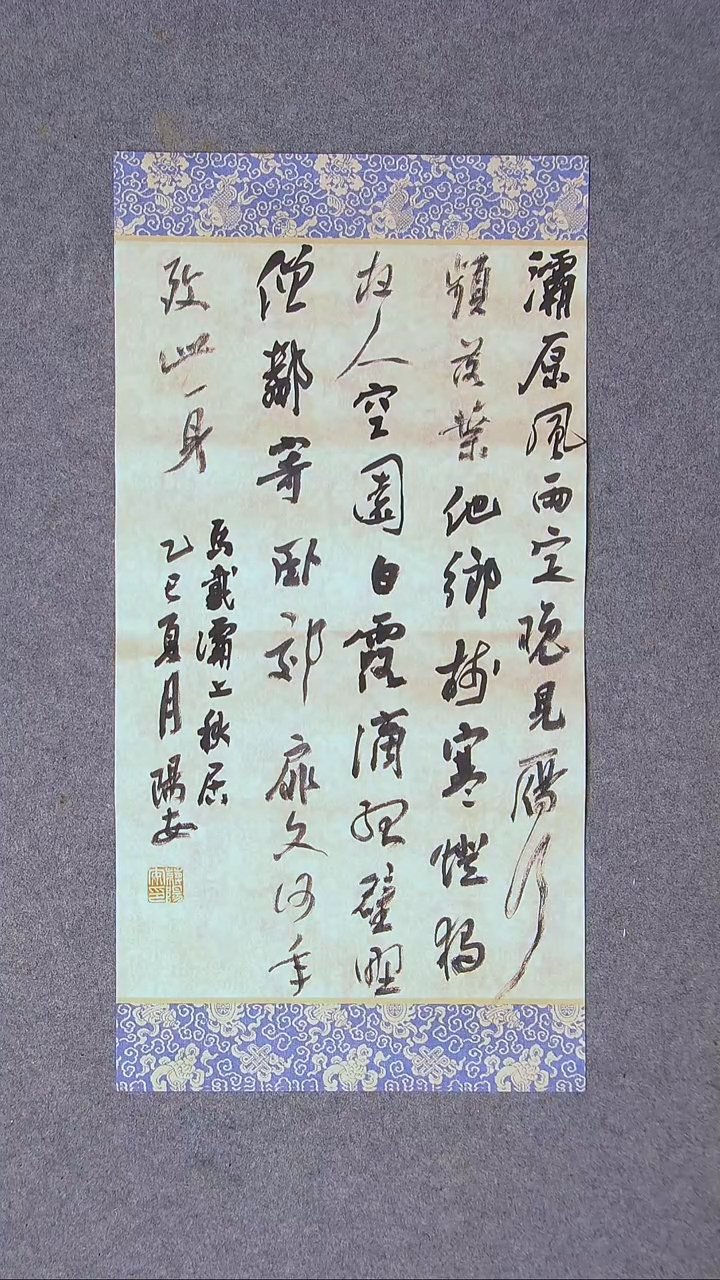 灞原風雨定晚見鴈行
頻落葉他鄉樹寒燈獨
夜人空園白露滴孤壁野
僧鄰寄臥郊扉久何年
致此身
馬戴灞上秋居
乙巳夏月陽安